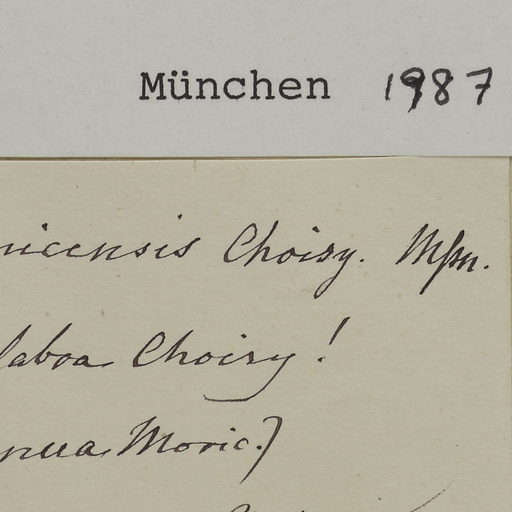 München 1987
nicensis Choisy. Mpn.
laboa Choisy!
nua Moric.)